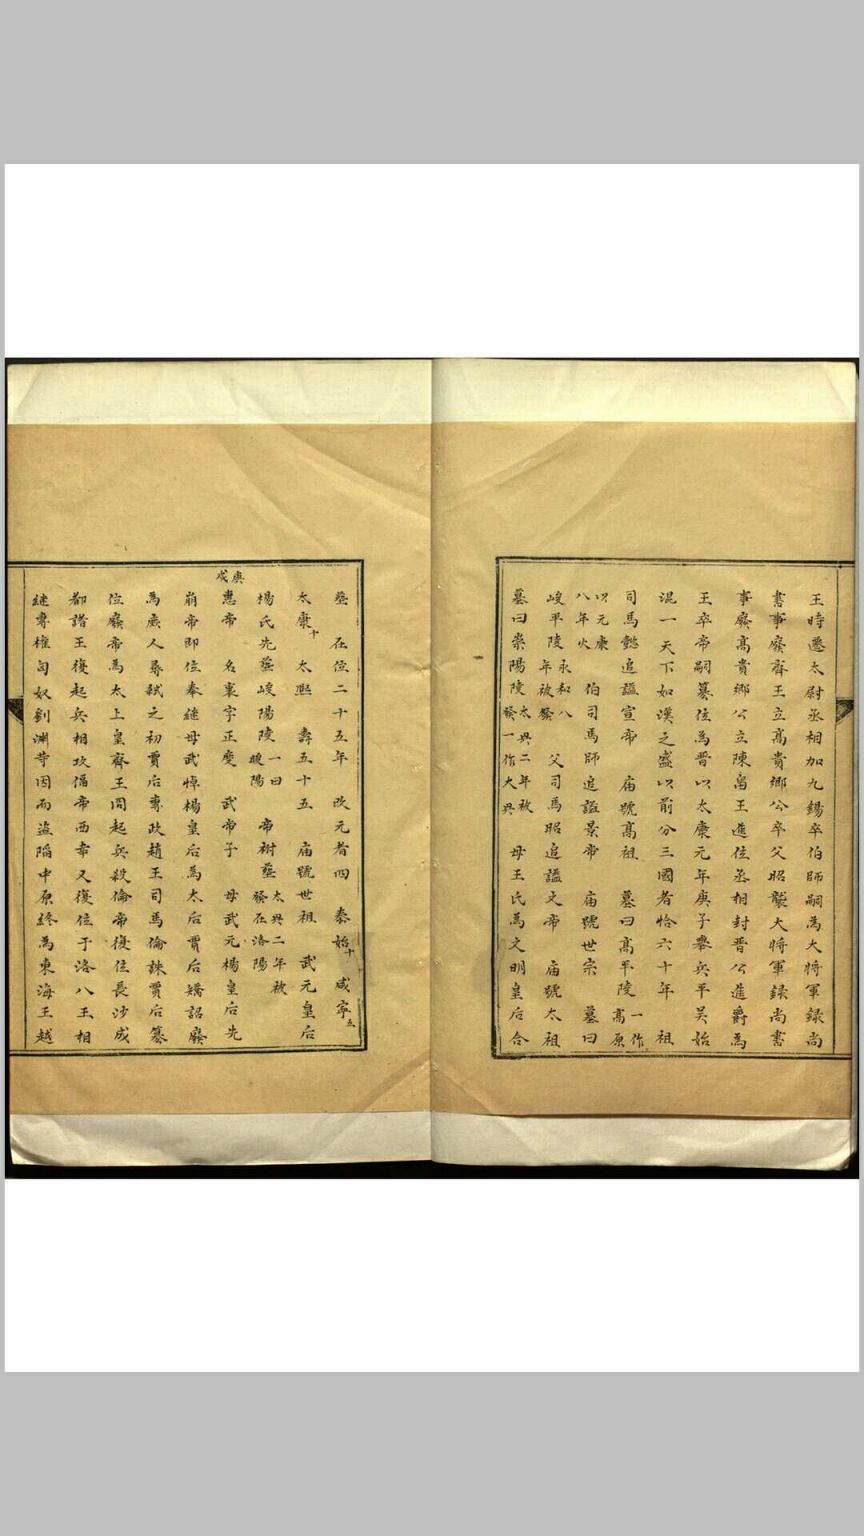 王時遷太尉丞相加九錫卒伯師嗣為大將軍録尚
書事廢齊王立高貴鄉公卒父昭襲大將軍録尚書
事廢高貴鄉公立陳畱王進位丞相封晋公進爵為
王卒帝嗣篡位為晋以太康元年庚子舉兵平吴始
混一天下如漢之盛以前分三國者恰六十年 祖
司馬懿追謚宣帝 庙號高祖 墓曰高平陵 一作高原
以元康八年火 伯司馬師追謚景帝 庙號世宗 墓曰
峻平陵 永和八年被發 父司馬昭追謚文帝 庙號太祖
墓曰崇陽陵 太興二年被發一作大興 母王氏為文明皇后合
塟 在位二十五年 改元者四 泰始十 咸寧五
太康十 太熙 壽五十五 庙號世祖 武元皇后
楊氏先塟峻陽陵 一曰峻陽 帝祔塟 太興二年被發在洛陽
庚戌
惠帝 名衷字正度 武帝子 母武元楊皇后先
崩帝即位奉繼母武悼楊皇后為太后賈后矯詔廢
為庶人尋弑之初賈后專政趙王司馬倫誅賈后篡
位廢帝為太上皇齊王冏起兵殺倫帝復位長沙成
都諸王復起兵相攻偪帝西幸又復位于洛八王相
継專權匈奴劉渊等因而盗陷中原終為東海王越